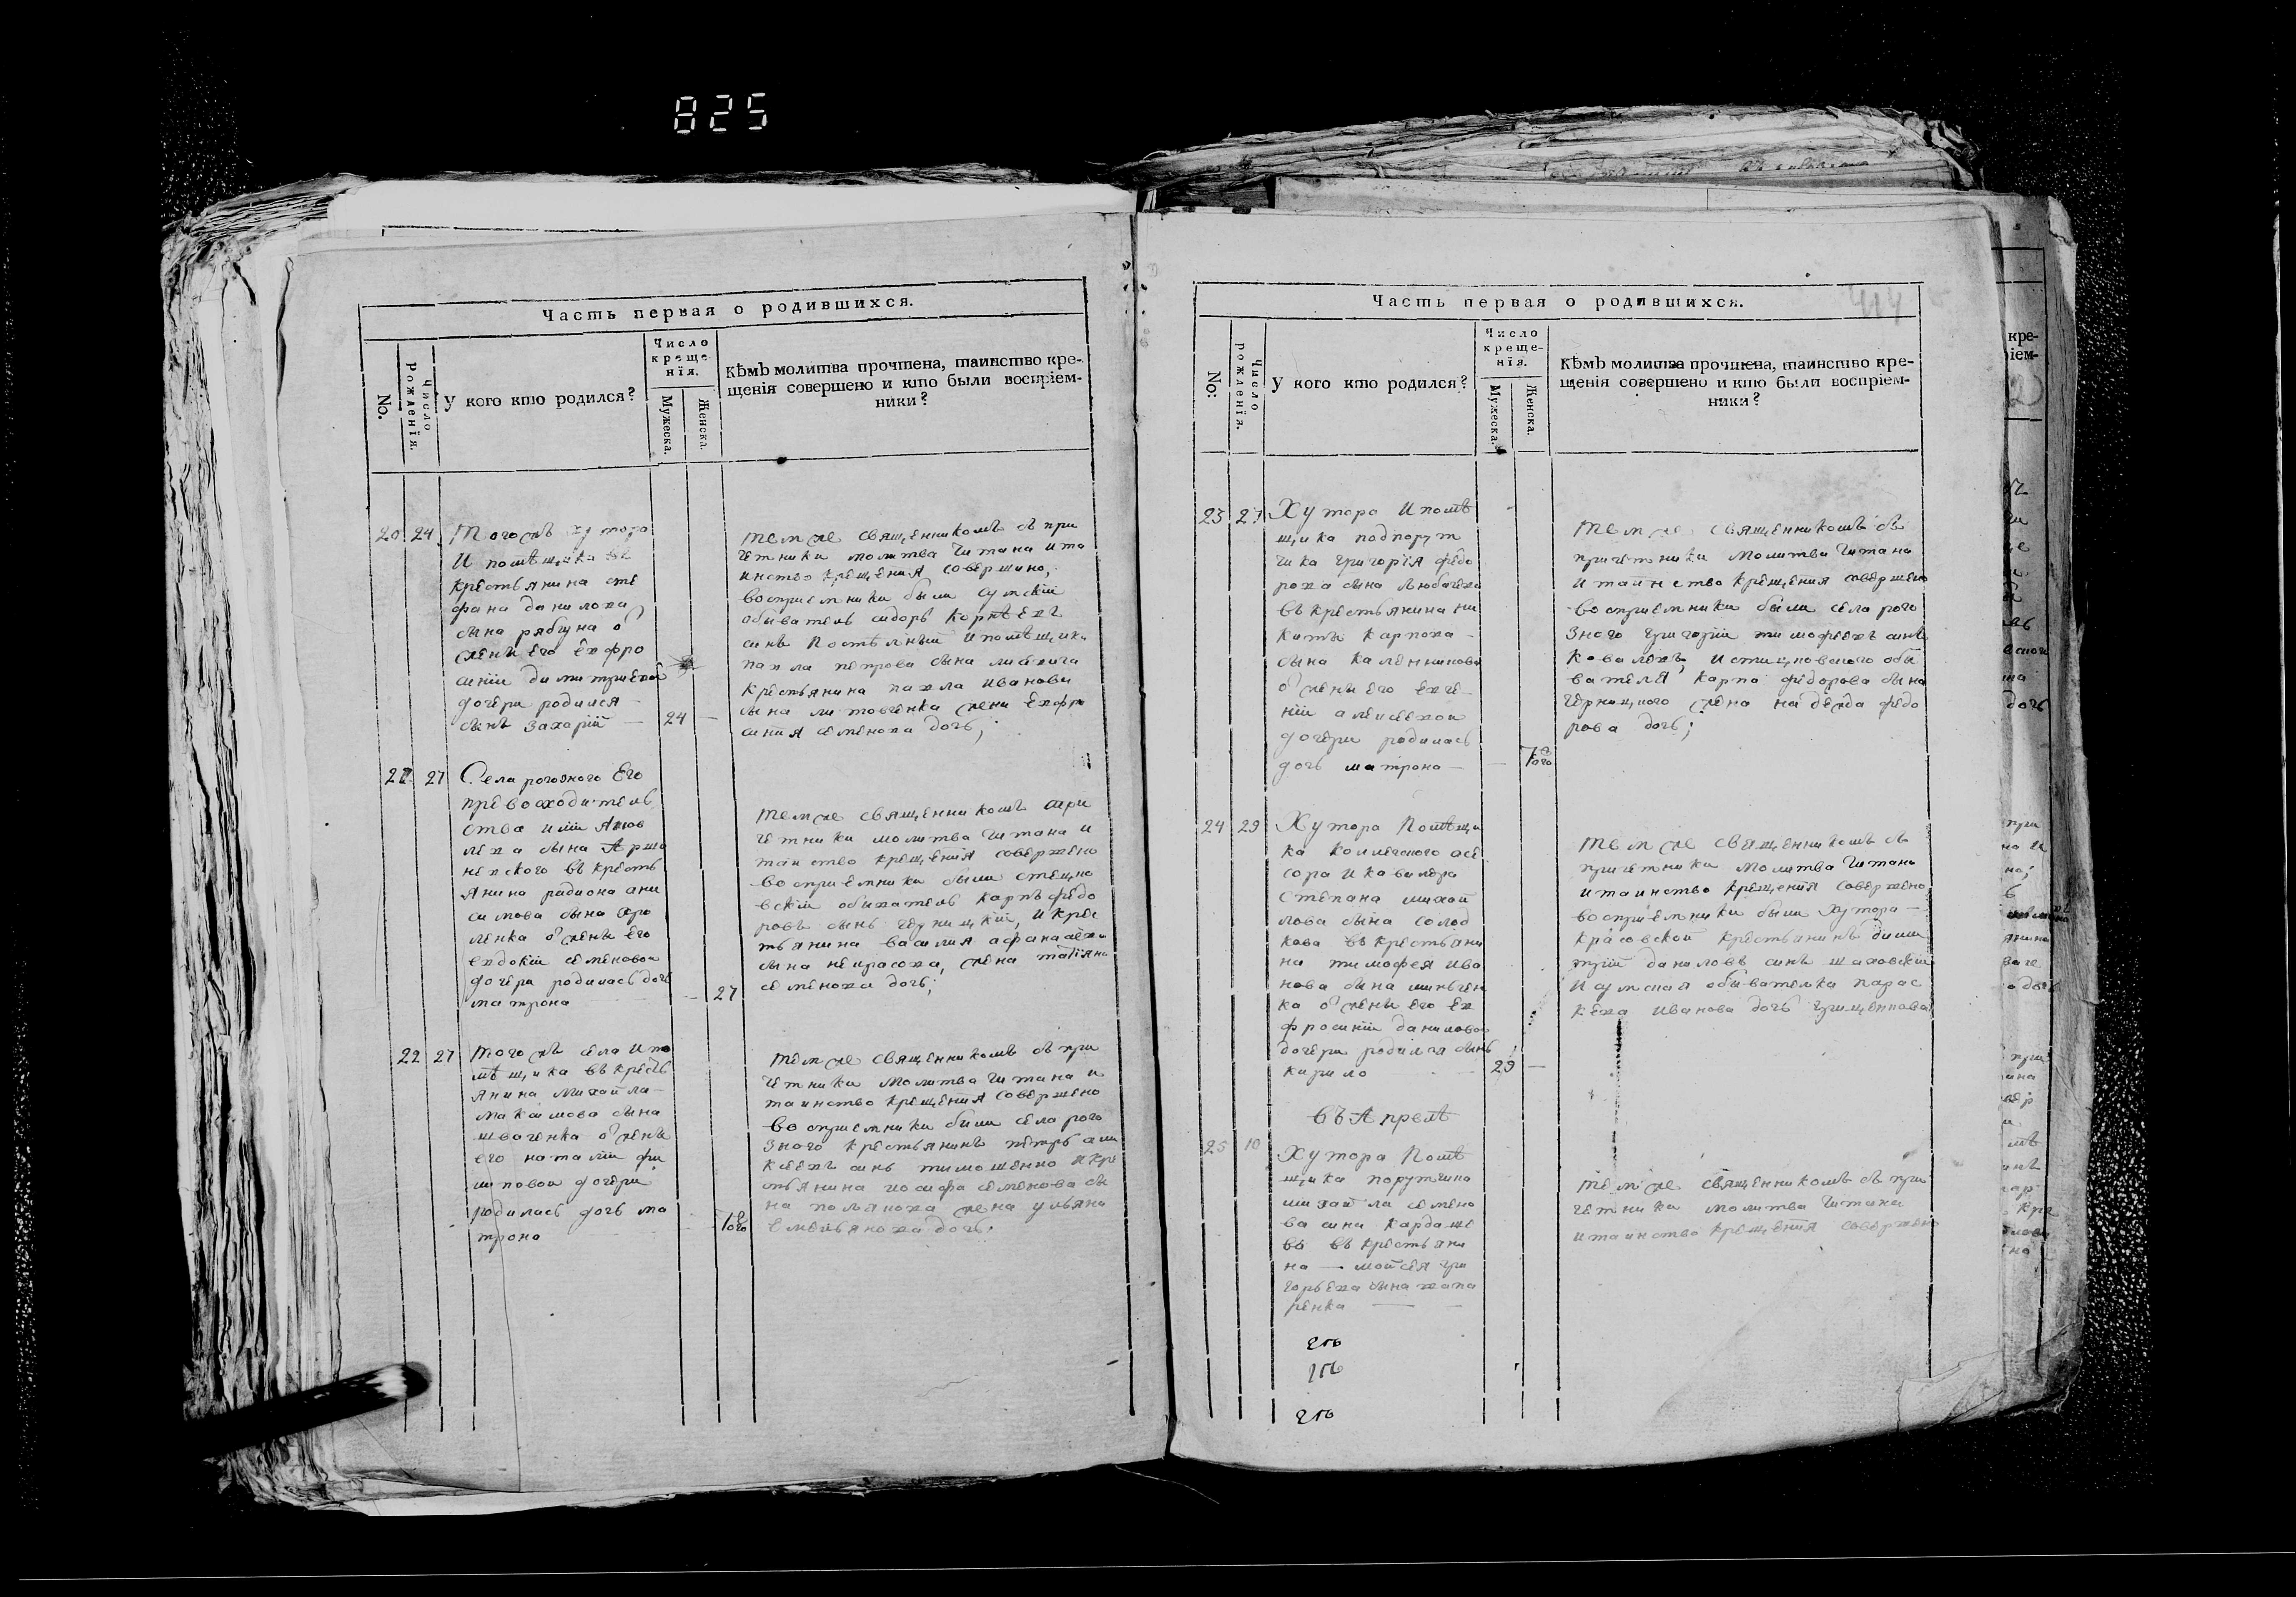 825
Часть первая о родившихся.
No.
Число рожденїя.
У кого кто родился?
Число
креще-
нїя.
Мужеска.
Женска.
Кѣмъ молитва прочтена, таинство кре-
щенїя совершено и кто были воспрїем-
ники?
20 24 Тогожъ хутора
И помѣщика
крестьянина сте
фана данилова
сына рябуна ѿ
жены его ехфро
синїи димитриевой
дочери родился
сынъ Захарїй — 24 —
темже священникомъ съ при
четники молитва читана ита
инство крещенїя совершино,
восприемники были сумскїй
обыватель сидоръ Корнѣехъ
синъ Постѣлній ипомѣщика
пахла петрова сына лисевича
крестьянина пахла иванови
сына литовченка жени ехфро
синїя семенова дочь;
21 27 Села рогозного Его
превосходитель
ства илїи
леха сына Арша
невского въ крестъ
янина радиона ани
симова сына
ленка ѿ жены его
евдокїи семеновой
дочери родилась дочь
матрона — 27
темже священникомъ спри
четники молитва читана и
таинство крещенїя совершено
восприемники были стецко
вскїй обыхатель Карпъ федо
ровъ сынъ черницкїй, и крес
тьянина василия афанасехи
сына некрасоха, жена татїяна
семенова дочь;
22 27 Того жъ села и по
мѣщика въ кресть
янина михаила
максимова сына
шваченка ѿ жены
его наталїи фи
липовой дочери
родилась дочь ма
трона
темже священникомъ съ при
четники молитва читана и
таинство крещенїя совершено
восприемники были села рого
зного крестьянинъ петръ али
ксѣехъ синъ тимошенко и кре
стьянина иосифа семенова сы
на поляноха жена ульяна
емельяноха дочь.
414
Часть первая о родившихся.
No:
Число рожденїя.
У кого кто родился?
Число
креще-
нїя.
Мужеска.
Женска.
Кѣмъ молитва прочтена, таинство кре-
щенїя совершено и кто были воспрїем-
ники?
23 27 Хутора Ипомѣ
щика подпорут
чика григорїя федо
роха сына любачеха
въ крестьянина ни
киты карпоха
сына каленникова
ѿ жены его ехге
нїи алексѣехой
дочери родилась
дочь матрона —
темже священникомъ съ
причетники молитва читана
и таинство крещения совершено
восприемники были села рого
зного григорїй тимофеехъ синъ
ковалехъ, и стицковского обы
вателя карпа федорова сына
черницкого жена надежда федо
рова дочь;
24 29 Хутора Помѣщи
ка коллежского асе
сора и кавалера
степана михай
лова сына солод
кова въ крестьяни
на тимофея ива
нова сына шинкен
ка ѿ жены его ех
фросинїи даниловой
дочери родился сынъ
кирило 29 —
темже священникомъ съ
причетники молитва читана
и таинство крещенїя совершено
восприемники были хутора —
красовской крестьянинъ дими
трїй даниловъ синъ шаховскїй
и сумская обивателка парас
кеха иванова дочь грищенкова
въ Апрелѣ
25 10 Хутора Помѣ
щика порутчика
михайла семено
ва сина кардаше
ва въ крестьяни
на — мойсея гри
горьеха сина хапа
ренка —
темже священникомъ съ при
четники молитва читана
и таинство крещенїя совершено